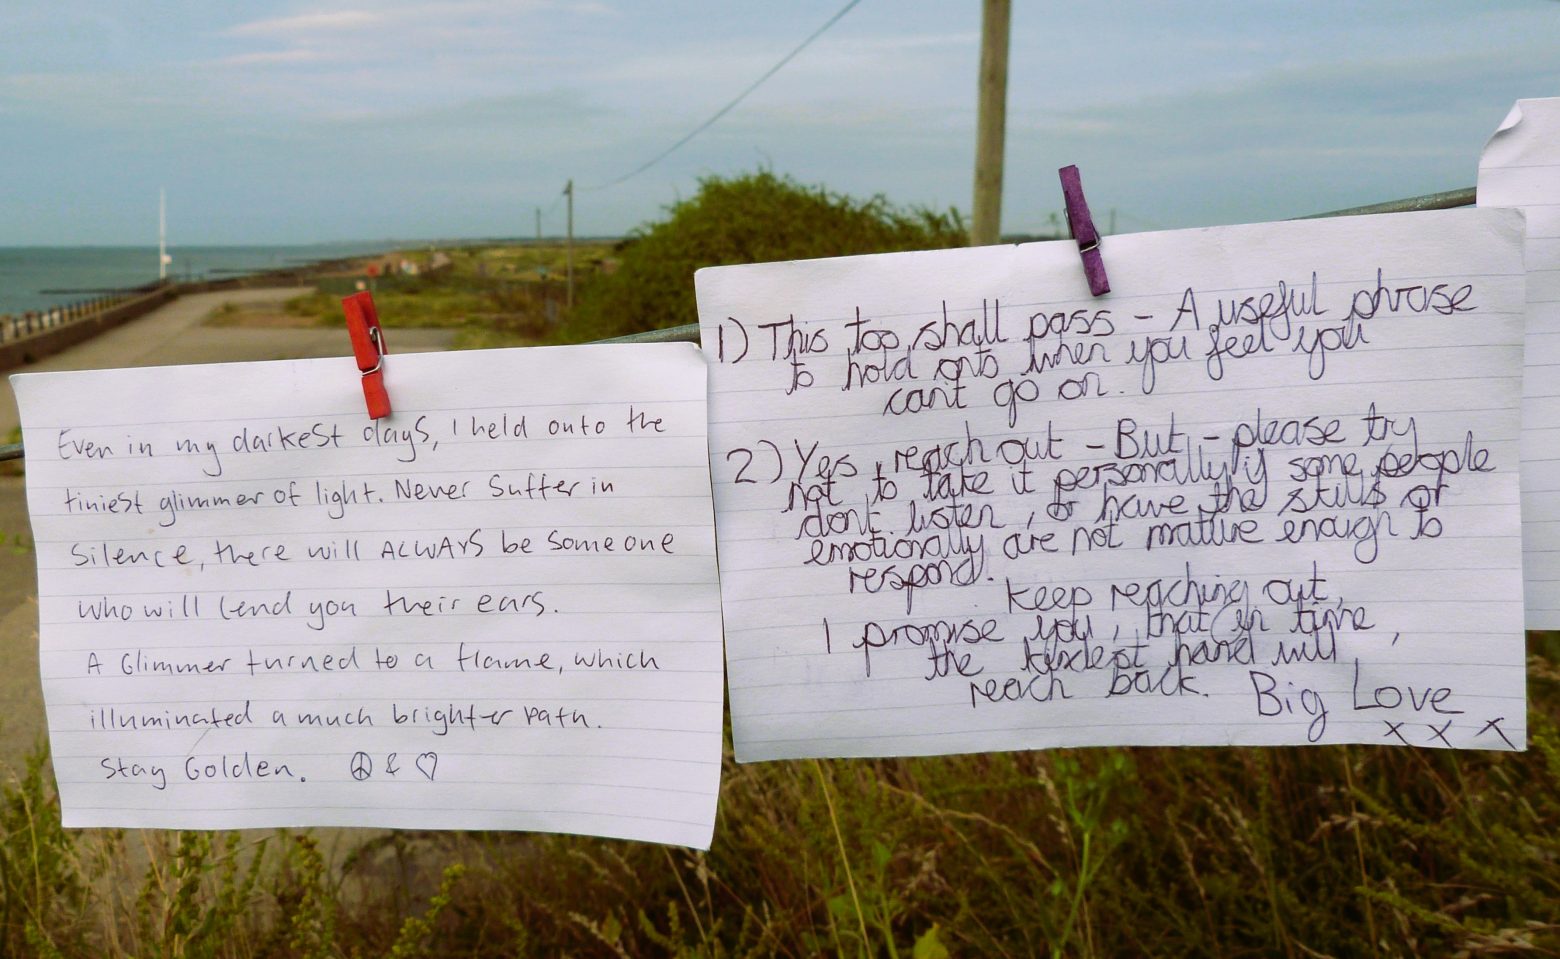 Even in my darkest days, I held onto the
tiniest glimmer of light. Never Suffer in
Silence, there will ALWAYS be someone
who will lend you their ears.
A Glimmer turned to a flame, which
illuminated a much brighter path.
Stay Golden. ☮ & ♡
1) This too, shall pass - A useful phrase
to hold onto when you feel you
can't go on.
2) Yes, reach out - But, - please try
not to take it personally if some people
don't listen, or have the skills or
emotionally are not mature enough to
respond.
Keep reaching out,
I promise you, that in time,
the kindest hand will,
reach back. Big Love
x x x